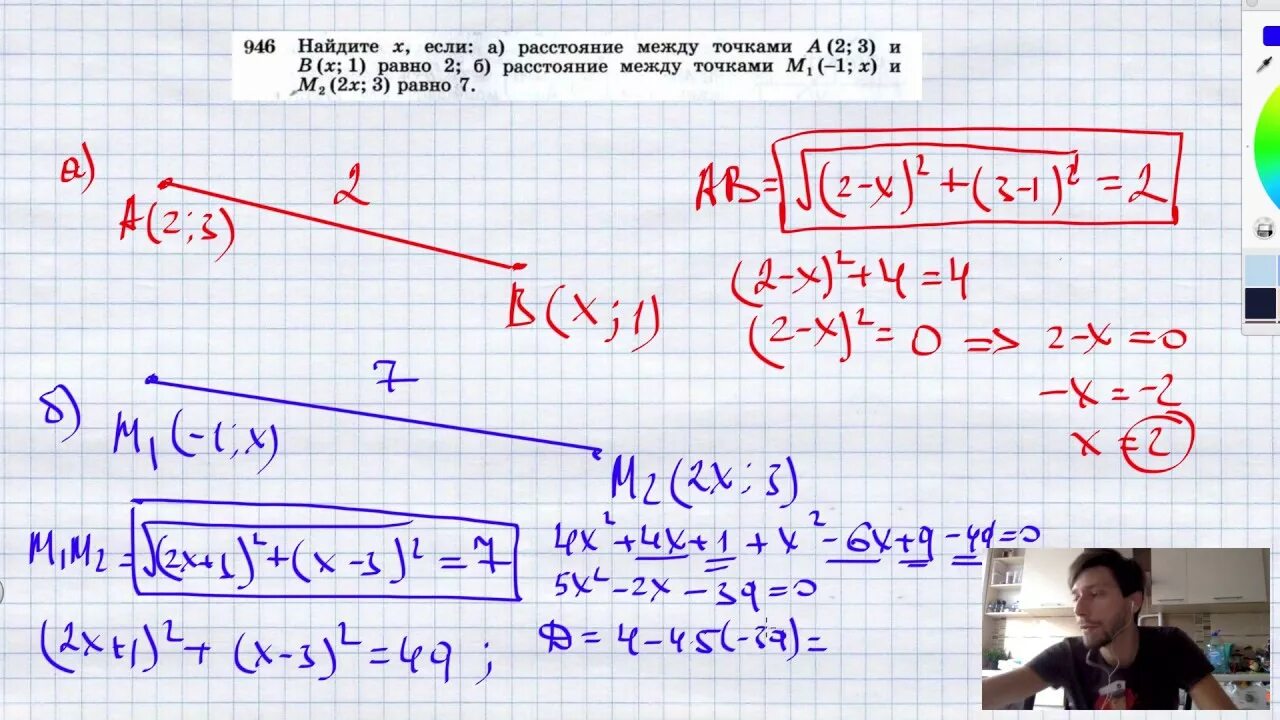 946 Найдите x, если: а) расстояние между точками A (2; 3) и
B (x; 1) равно 2; б) расстояние между точками M₁ (–1; x) и
M₂ (2x; 3) равно 7.
а)
2
A(2;3)
B(x;1)
AB = √(2-x)² + (3-1)² = 2
(2-x)² + 4 = 4
(2-x)² = 0 => 2-x = 0
-x = -2
x = 2
б)
7
M₁(-1;x)
M₂(2x;3)
M₁M₂ = √(2x+1)² + (x-3)² = 7
(2x+1)² + (x-3)² = 49 ;
4x² + 4x + 1 + x² - 6x + 9 - 49 = 0
5x² - 2x - 39 = 0
D = 4 - 4·5(-39) =